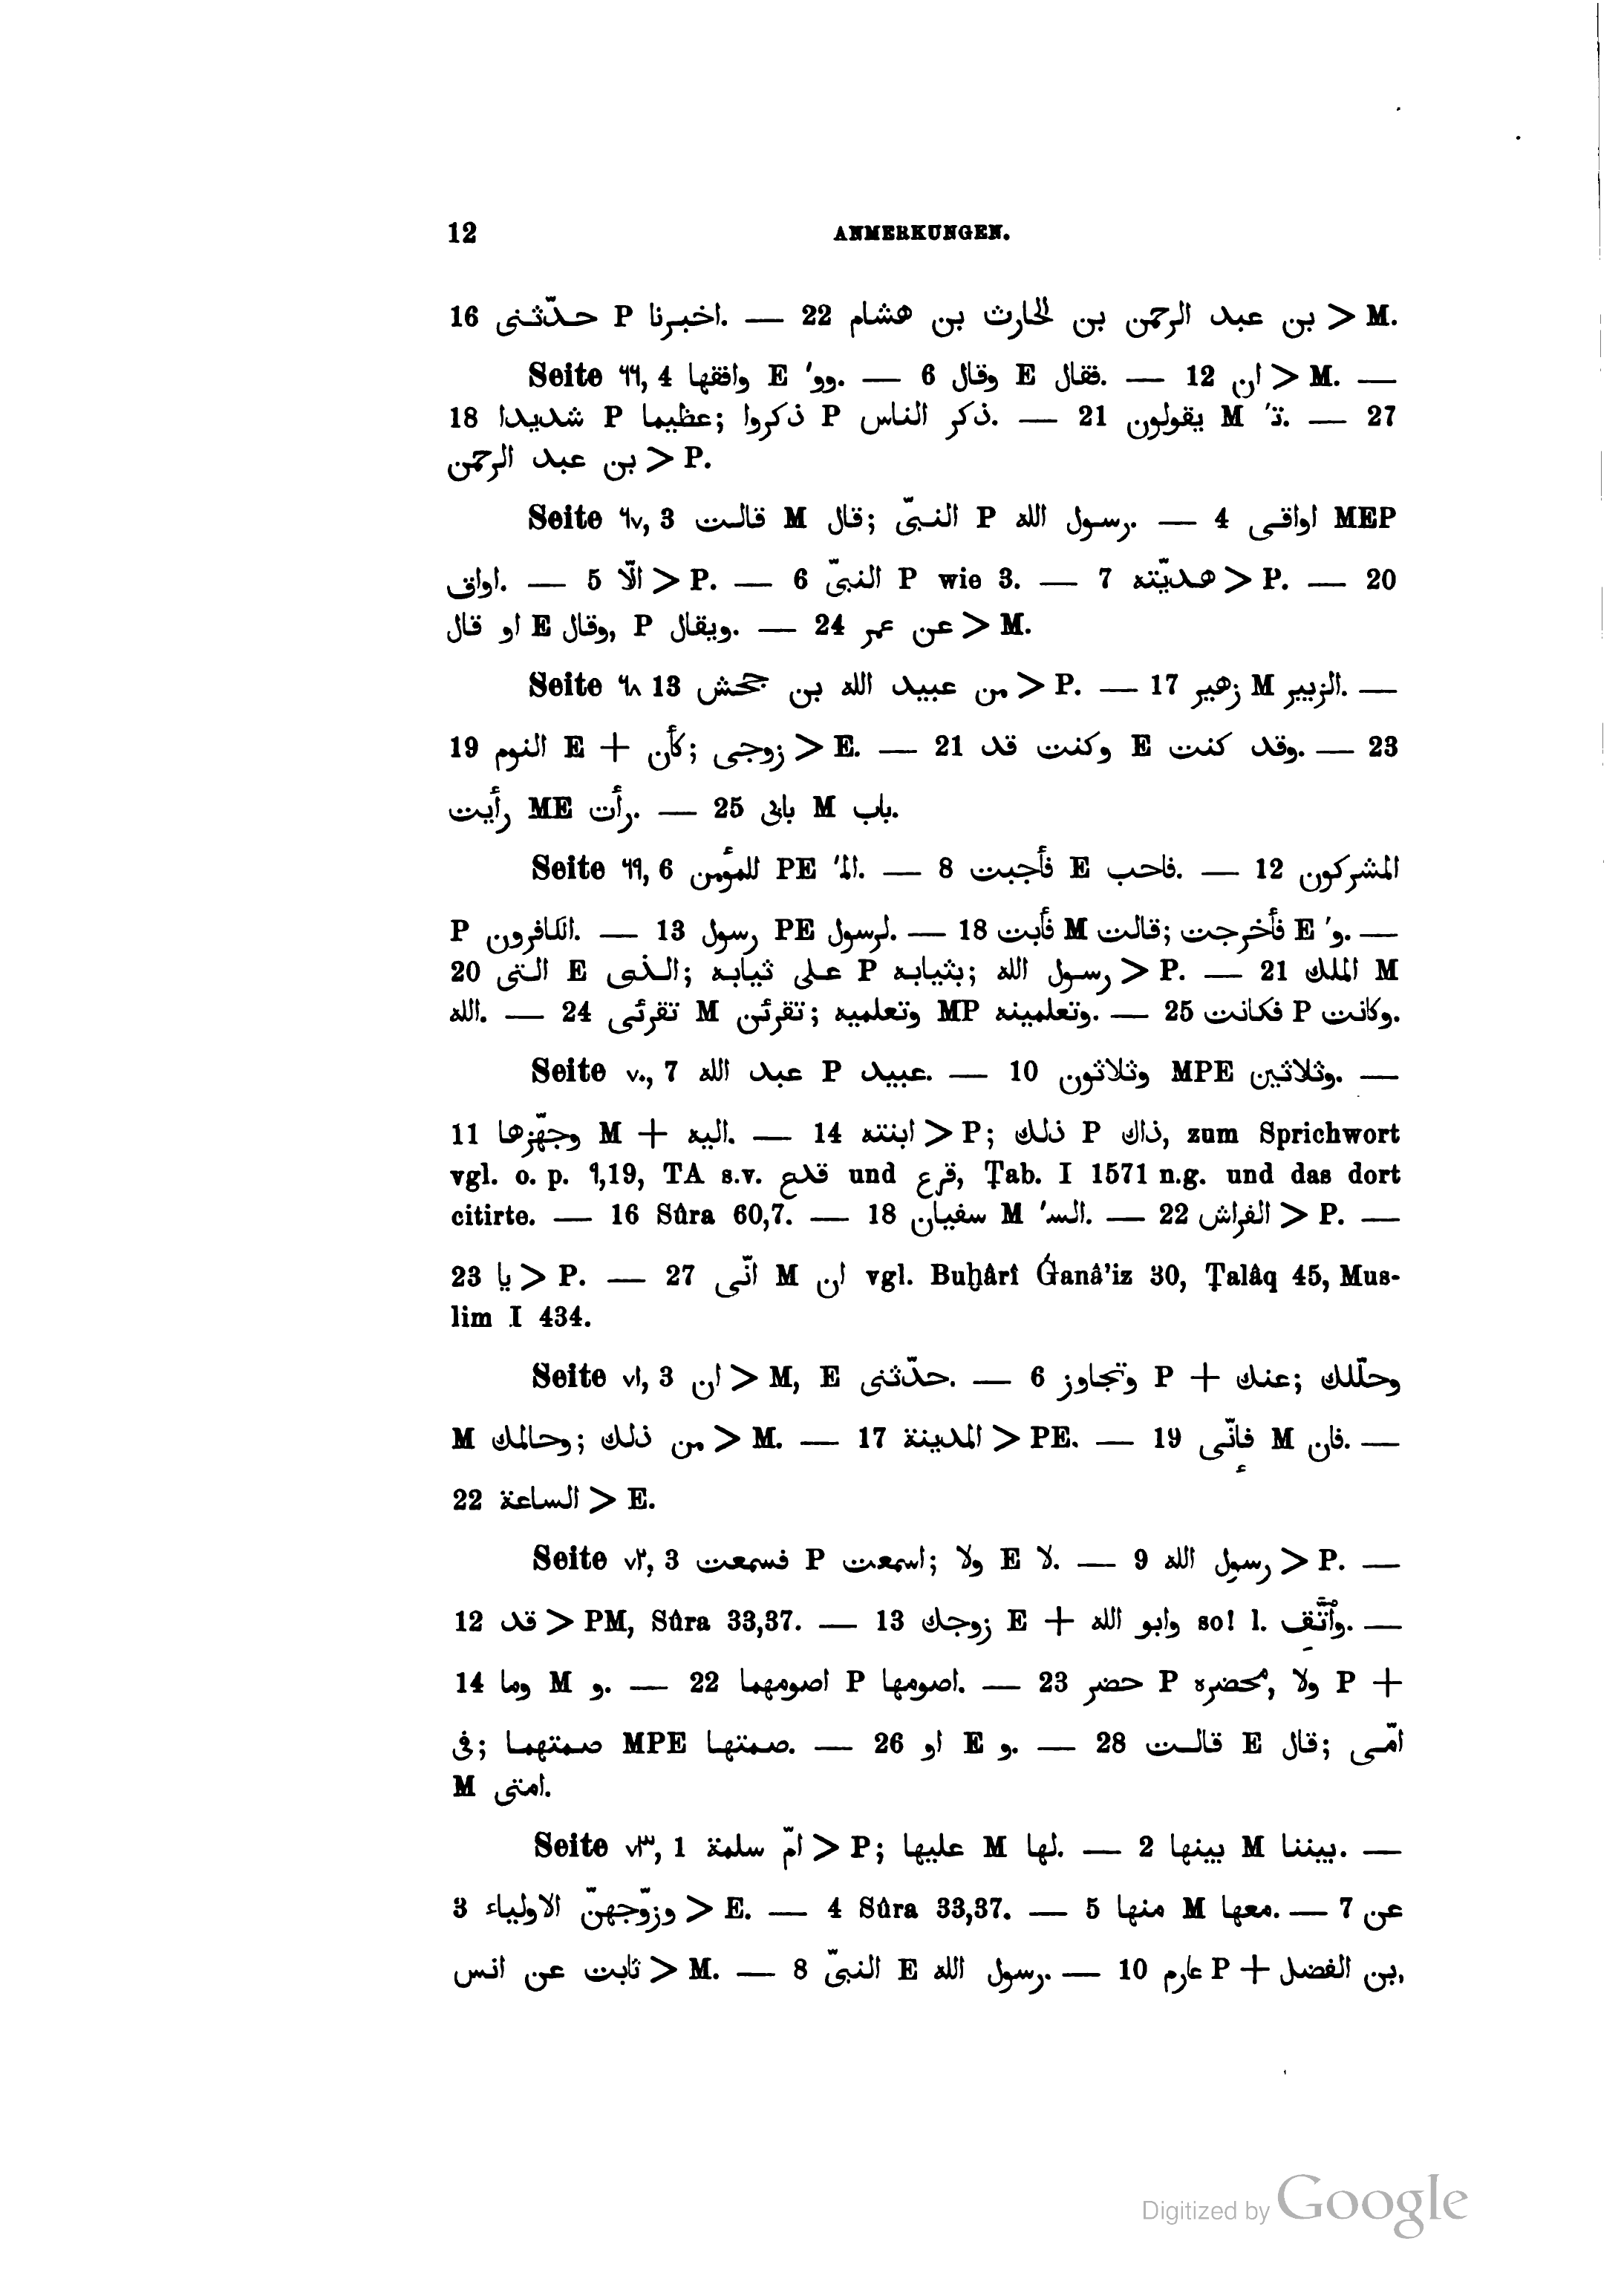 12 ANMERKUNGEN.
16 حدّثنى P اخبرنا. — 22 بن عبد الرحمن بن الحارث بن هشام > M.
Seite ٦٦, 4 وافقها E 'وو. — 6 وقال E فقال. — 12 ان > M. —
18 شديدا P عظيما; ذكروا P ذكر الناس. — 21 يقولون M 'تـ. — 27
بن عبد الرحمن > P.
Seite ٦٧, 3 قالت M قال; النبىّ P رسول الله. — 4 اواقى MEP
اواق. — 5 الّا > P. — 6 النبىّ P wie 3. — 7 هديّته > P. — 20
او قال E وقال, P ويقال. — 24 عن عمر > M.
Seite ٦٨ 13 من عبيد الله بن جحش > P. — 17 زهير M الزبير. —
19 النوم E + كأن; زوجى > E. — 21 وكنت قد E وقد كنت. — 23
رأيت ME رأت. — 25 بابى M باب.
Seite ٦٩, 6 للمؤمن PE 'الم. — 8 فأجبت E فاحب. — 12 المشركون
P الكافرون. — 13 رسول PE لرسول. — 18 فأبت M قالت; فأخرجت E 'و. —
20 التى E الذى; على ثيابه P بثيابه; رسول الله > P. — 21 الملك M
الله. — 24 تقرئى M تقرئن; وتعلميه MP وتعلمينه. — 25 فكانت P وكانت.
Seite ٧٠, 7 عبد الله P عبيد. — 10 وثلاثون MPE وثلاثين. —
11 وجهّزها M + اليه. — 14 ابنته > P; ذلك P ذاك, zum Sprichwort
vgl. o. p. ٩,19, TA s.v. قدع und قرع, Ṭab. I 1571 n.g. und das dort
citirte. — 16 Sûra 60,7. — 18 سفيان M 'السـ. — 22 الفراش > P. —
23 يا > P. — 27 انّى M ان vgl. Buḫârî Ǵanâ'iz 30, Ṭalâq 45, Mus-
lim I 434.
Seite ٧١, 3 ان > M, E حدّثنى. — 6 وتجاوز P + عنك; وحلّلك
M وحالك; من ذلك > M. — 17 المدينة > PE. — 19 فإنّى M فان. —
22 الساعة > E.
Seite ٧٢, 3 فسمعت P اسمعت; ولا E لا. — 9 رسول الله > P. —
12 قد > PM, Sûra 33,37. — 13 زوجك E + وابو الله so! l. وٱتّق. —
14 وما M و. — 22 اصومهما P اصومها. — 23 حضر P محضره, ولا P +
فى; صمتهما MPE صمتها. — 26 او E و. — 28 قالت E قال; امّى
M امتى.
Seite ٧٣, 1 امّ سلمة > P; عليها M لها. — 2 بينها M بيننا. —
3 وزوّجهنّ الاولياء > E. — 4 Sûra 33,37. — 5 منها M معها. — 7 عن
ثابت عن انس > M. — 8 النبىّ E رسول الله. — 10 عارم P + بن الفضل,
Digitized by Google